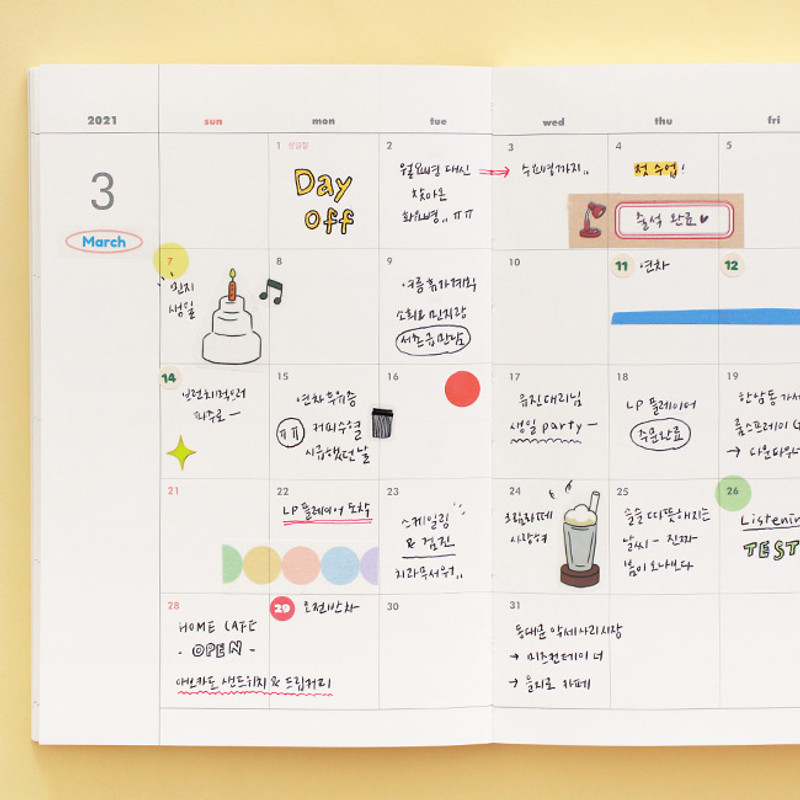 2021
sun mon tue wed thu fri
3
March
1 삼일절
Day
Off
2
월요병 대신
찾아온
화요병,, ㅠㅠ
3
수요병까지,,
4
첫 수업!
출석 완료
5
7
민지
생일
8
9
여름휴가계획
소희와 민지랑
서촌급만남
10
11 연차
12
14
브런치먹으러
파주로 ー
15
연차후유증
ㅠㅠ 커피수혈
시급했던날
16
17
유진대리님
생일 party ー
18
LP 플레이어
주문완료
19
한남동 가서
룸스프레이
→
21
22
LP 플레이어 도착
23
스케일링
& 검진
치과무서워,,
24
크림라떼
사랑해
25
슬슬 따뜻해지는
날씨 ー 진짜
봄이 오나보다
26
Listening
TEST
28
HOME CAFE
- OPEN -
아보카도 샌드위치 & 드립커피
29 오전반차
30
31
동대문 악세사리시장
→ 미즈컨테이너
→ 을지로 카페